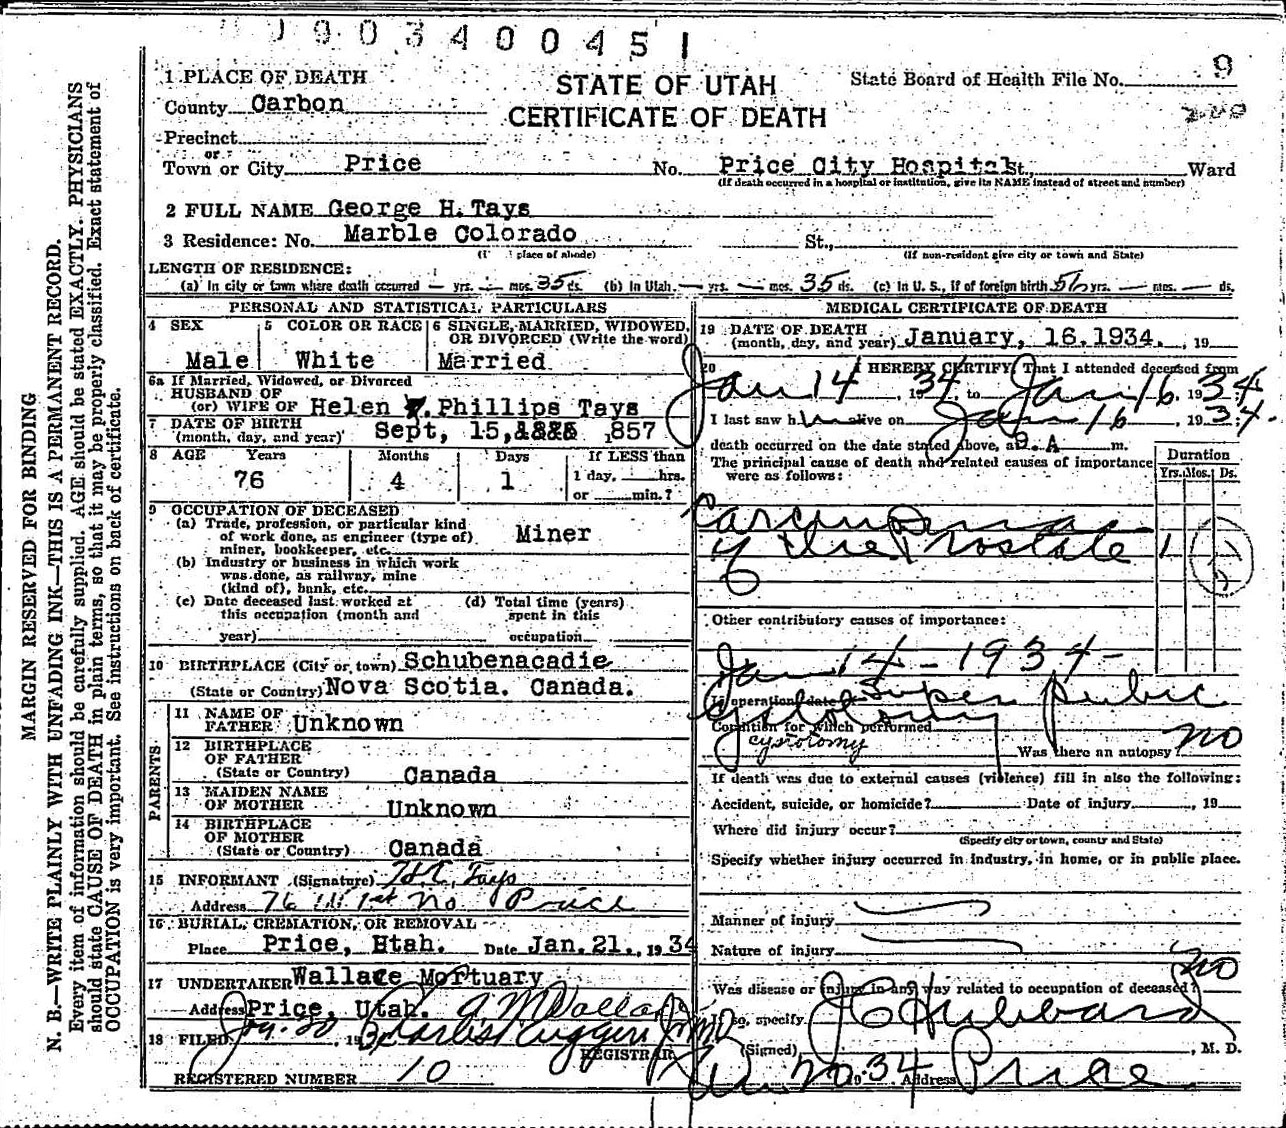 1903400451
1 PLACE OF DEATH
STATE OF UTAH
CERTIFICATE OF DEATH
State Board of Health File No. 9
200
County Carbon
Precinct
or
Town or City Price No. Price City Hospital St., Ward
(If death occurred in a hospital or institution, give its NAME instead of street and number)
2 FULL NAME George H. Tays
3 Residence: No. Marble Colorado St.,
place of abode) (If non-resident give city or town and State)
LENGTH OF RESIDENCE:
(a) In city or town where death occurred — yrs. — mos. 35 ds. (b) In Utah — yrs. — mos. 35 ds. (c) In U. S., if of foreign birth 56 yrs. — mos. — ds.
PERSONAL AND STATISTICAL PARTICULARS
4 SEX 5 COLOR OR RACE 6 SINGLE, MARRIED, WIDOWED,
OR DIVORCED (Write the word)
Male White Married
6a If Married, Widowed, or Divorced
HUSBAND OF
(or) WIFE OF Helen F. Phillips Tays
7 DATE OF BIRTH
(month, day, and year) Sept, 15, 1857
8 AGE Years Months Days If LESS than
76 4 1 1 day, hrs.
or min.?
9 OCCUPATION OF DECEASED
(a) Trade, profession, or particular kind
of work done, as engineer (type of)
miner, bookkeeper, etc. Miner
(b) Industry or business in which work
was done, as railway, mine
(kind of), bank, etc.
(c) Date deceased last worked at (d) Total time (years)
this occupation (month and spent in this
year) occupation
10 BIRTHPLACE (City or town) Schubenacadie
(State or Country) Nova Scotia. Canada.
PARENTS
11 NAME OF
FATHER Unknown
12 BIRTHPLACE
OF FATHER
(State or Country) Canada
13 MAIDEN NAME
OF MOTHER Unknown
14 BIRTHPLACE
OF MOTHER
(State or Country) Canada
15 INFORMANT (Signature) H.C. Tays
Address 76 W 1st No Price
16 BURIAL, CREMATION, OR REMOVAL
Place Price, Htah. Date Jan. 21., 1934
17 UNDERTAKER Wallace Mortuary
Address Price, Utah. A M Wallace
18 FILED Jan. 20, 193
REGISTRAR
REGISTERED NUMBER 10
MEDICAL CERTIFICATE OF DEATH
19 DATE OF DEATH
(month, day, and year) January, 16. 1934. , 19
20 I HEREBY CERTIFY, That I attended deceased from
Jan 14, 1934, to Jan 16, 1934
I last saw him alive on Jan 16, 1934.
death occurred on the date stated above, at 9. A m.
The principal cause of death and related causes of importance
were as follows:
Duration
Yrs. Mos. Ds.
Carcinoma
of the Prostate 1
Other contributory causes of importance:
Jan 14 - 1934 -
If operation date Super pubic
Condition for which performed
cystotomy
Was there an autopsy? no
If death was due to external causes (violence) fill in also the following:
Accident, suicide, or homicide? Date of injury , 19
Where did injury occur?
(Specify city or town, county and State)
Specify whether injury occurred in industry, in home, or in public place.
Manner of injury
Nature of injury
Was disease or injury in any way related to occupation of deceased? no
If so, specify
(Signed) J C Hubbard , M. D.
Jan 20 1934 Address Price
MARGIN RESERVED FOR BINDING
N. B.—WRITE PLAINLY WITH UNFADING INK—THIS IS A PERMANENT RECORD.
Every item of information should be carefully supplied. AGE should be stated EXACTLY. PHYSICIANS
should state CAUSE OF DEATH in plain terms, so that it may be properly classified. Exact statement of
OCCUPATION is very important. See instructions on back of certificate.